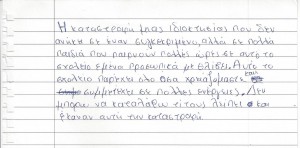 Η καταστροφή μιας ιδιοκτησίας που δεν
ανήκει σε έναν συγκεκριμένο, αλλά σε πολλά
παιδιά που παίρνουν πολλές ώρες σε αυτό το
σχολείο εμένα προσωπικά με θλίβει. Αυτό το
σχολείο παρέχει όλα όσα χρειαζόμαστε και
συμμετέχει σε πολλές ενέργειες. Δεν
μπορώ να καταλάβω τι τους λείπει και
έκαναν αυτή την καταστροφή.